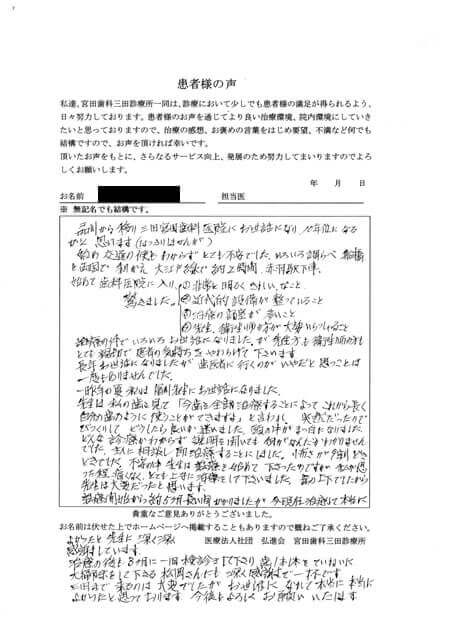 患者様の声
私達、宮田歯科三田診療所一同は、診療において少しでも患者様の満足が得られるよう、
日々努力しております。患者様のお声を通じてより良い治療環境、院内環境にしていき
たいと思っておりますので、治療の感想、お褒めの言葉をはじめ要望、不満など何でも
結構ですので、お声を頂ければ幸いです。
頂いたお声をもとに、さらなるサービス向上、発展のため努力してまいりますのでよろ
しくお願いします。
年 月 日
お名前 担当医
※ 無記名でも結構です。
から 三田宮田歯科医院にお世話になり、10年位になる
かと思います(はっきりしませんが)
始め交通の便もわからずとても不安でした。いろいろ調べ
大江戸線で約2時間、赤羽橋下車、
始めて歯科医院に入り
驚きました。
①非常に明るくきれいなこと
②近代的設備が整っていること
③治療の
④先生、衛生士の方が大勢いらっしゃること
いろいろお世話になりました。が先生方も衛生士の方も
とても親切で患者の気持ちをやわらげて下さいます
長年お世話になりましたが歯医者に行くのがいやだと思ったことは
一度もありませんでした。
一昨年の夏 私は 先生にお世話になりました。
先生は私の歯を見て「今歯を全部治療することによってこれから長く
自分の歯のように使うことができますよ」と言われ、突然だったので
びっくりして どうしたら良いか迷いました。頭の中がまっ白になりました
どんな診療かわからず 説明を聞いても何がなんだかわかりません
でした。主人に相談し即治療することにしました。
不安の中 先生は治療を始めて下さったのですが 私が思
った程 痛くなく とても上手に治療をして下さいました。
先生は大変だったと思います。
治療開始から約5ヶ月 長い間かかりましたが今現在治療して本当に
貴重なご意見ありがとうございました。
お名前は伏せた上でホームページへ掲載することもありますので概ねご了承ください。
医療法社団 弘進会 宮田歯科三田診療所
よかったと先生に深く深く
感謝しています。
治療の後も3ヶ月に一回検診をして下さり 歯1本1本をていねいに
大掃除をして下さる 松岡さんにも 深く感謝で一杯です
三田まで来るのは大変でしたが お世話になれて本当に本当に
よかったと思っております 今後もよろしくお願いいたします